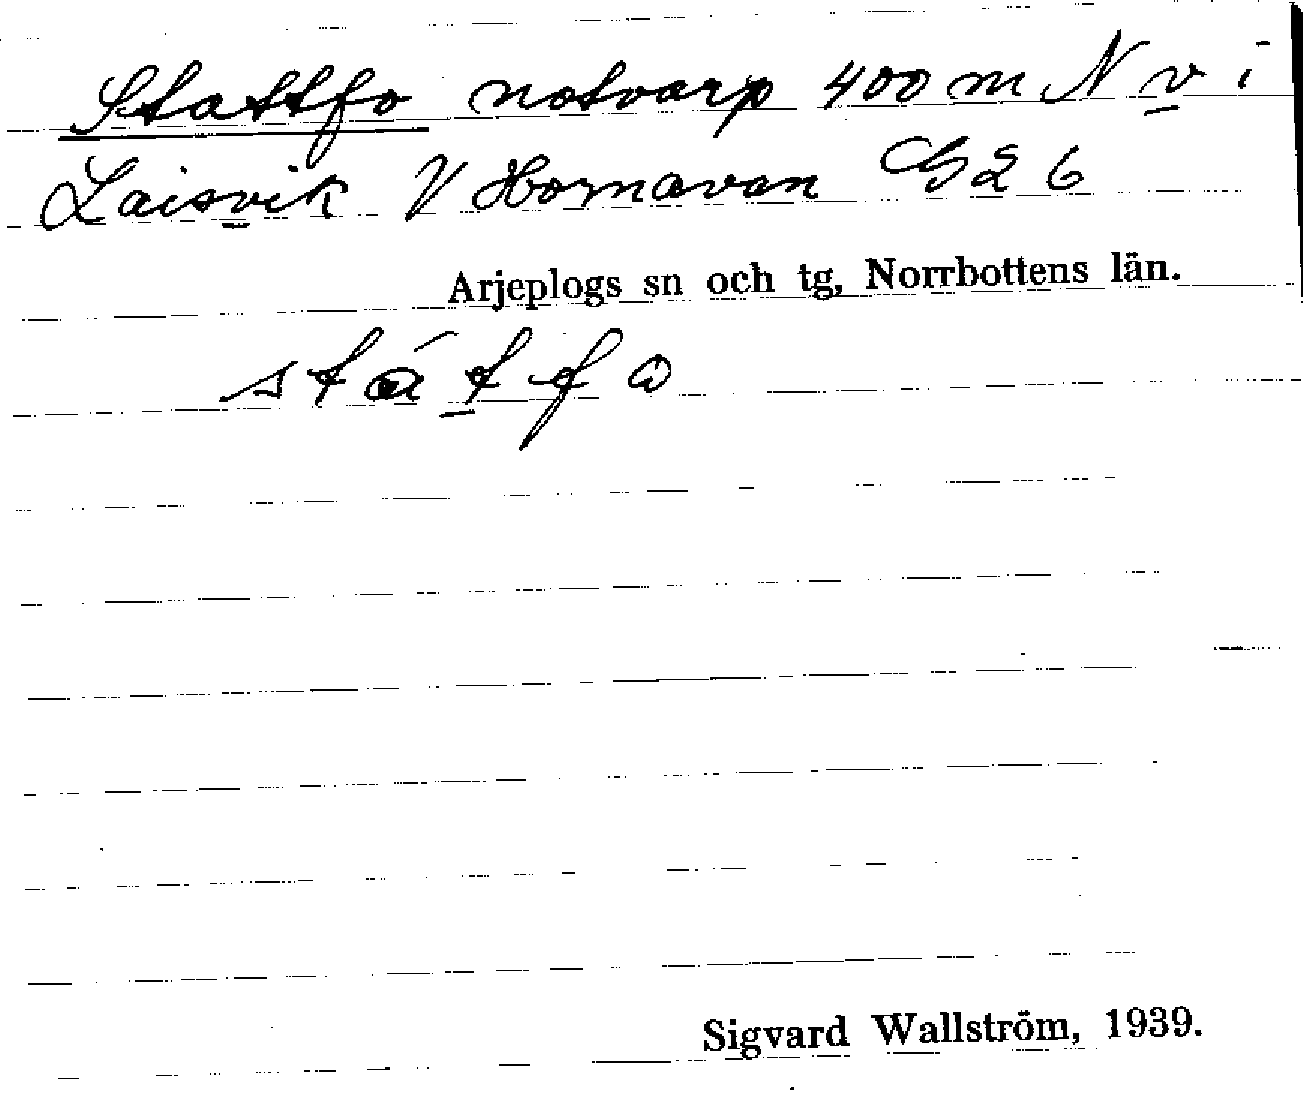 Stattfo notvarp 400 m N v i
Laisvik V Hornavan G26
Arjeplogs sn och tg, Norrbottens län.
státfo
Sigvard Wallström, 1939.